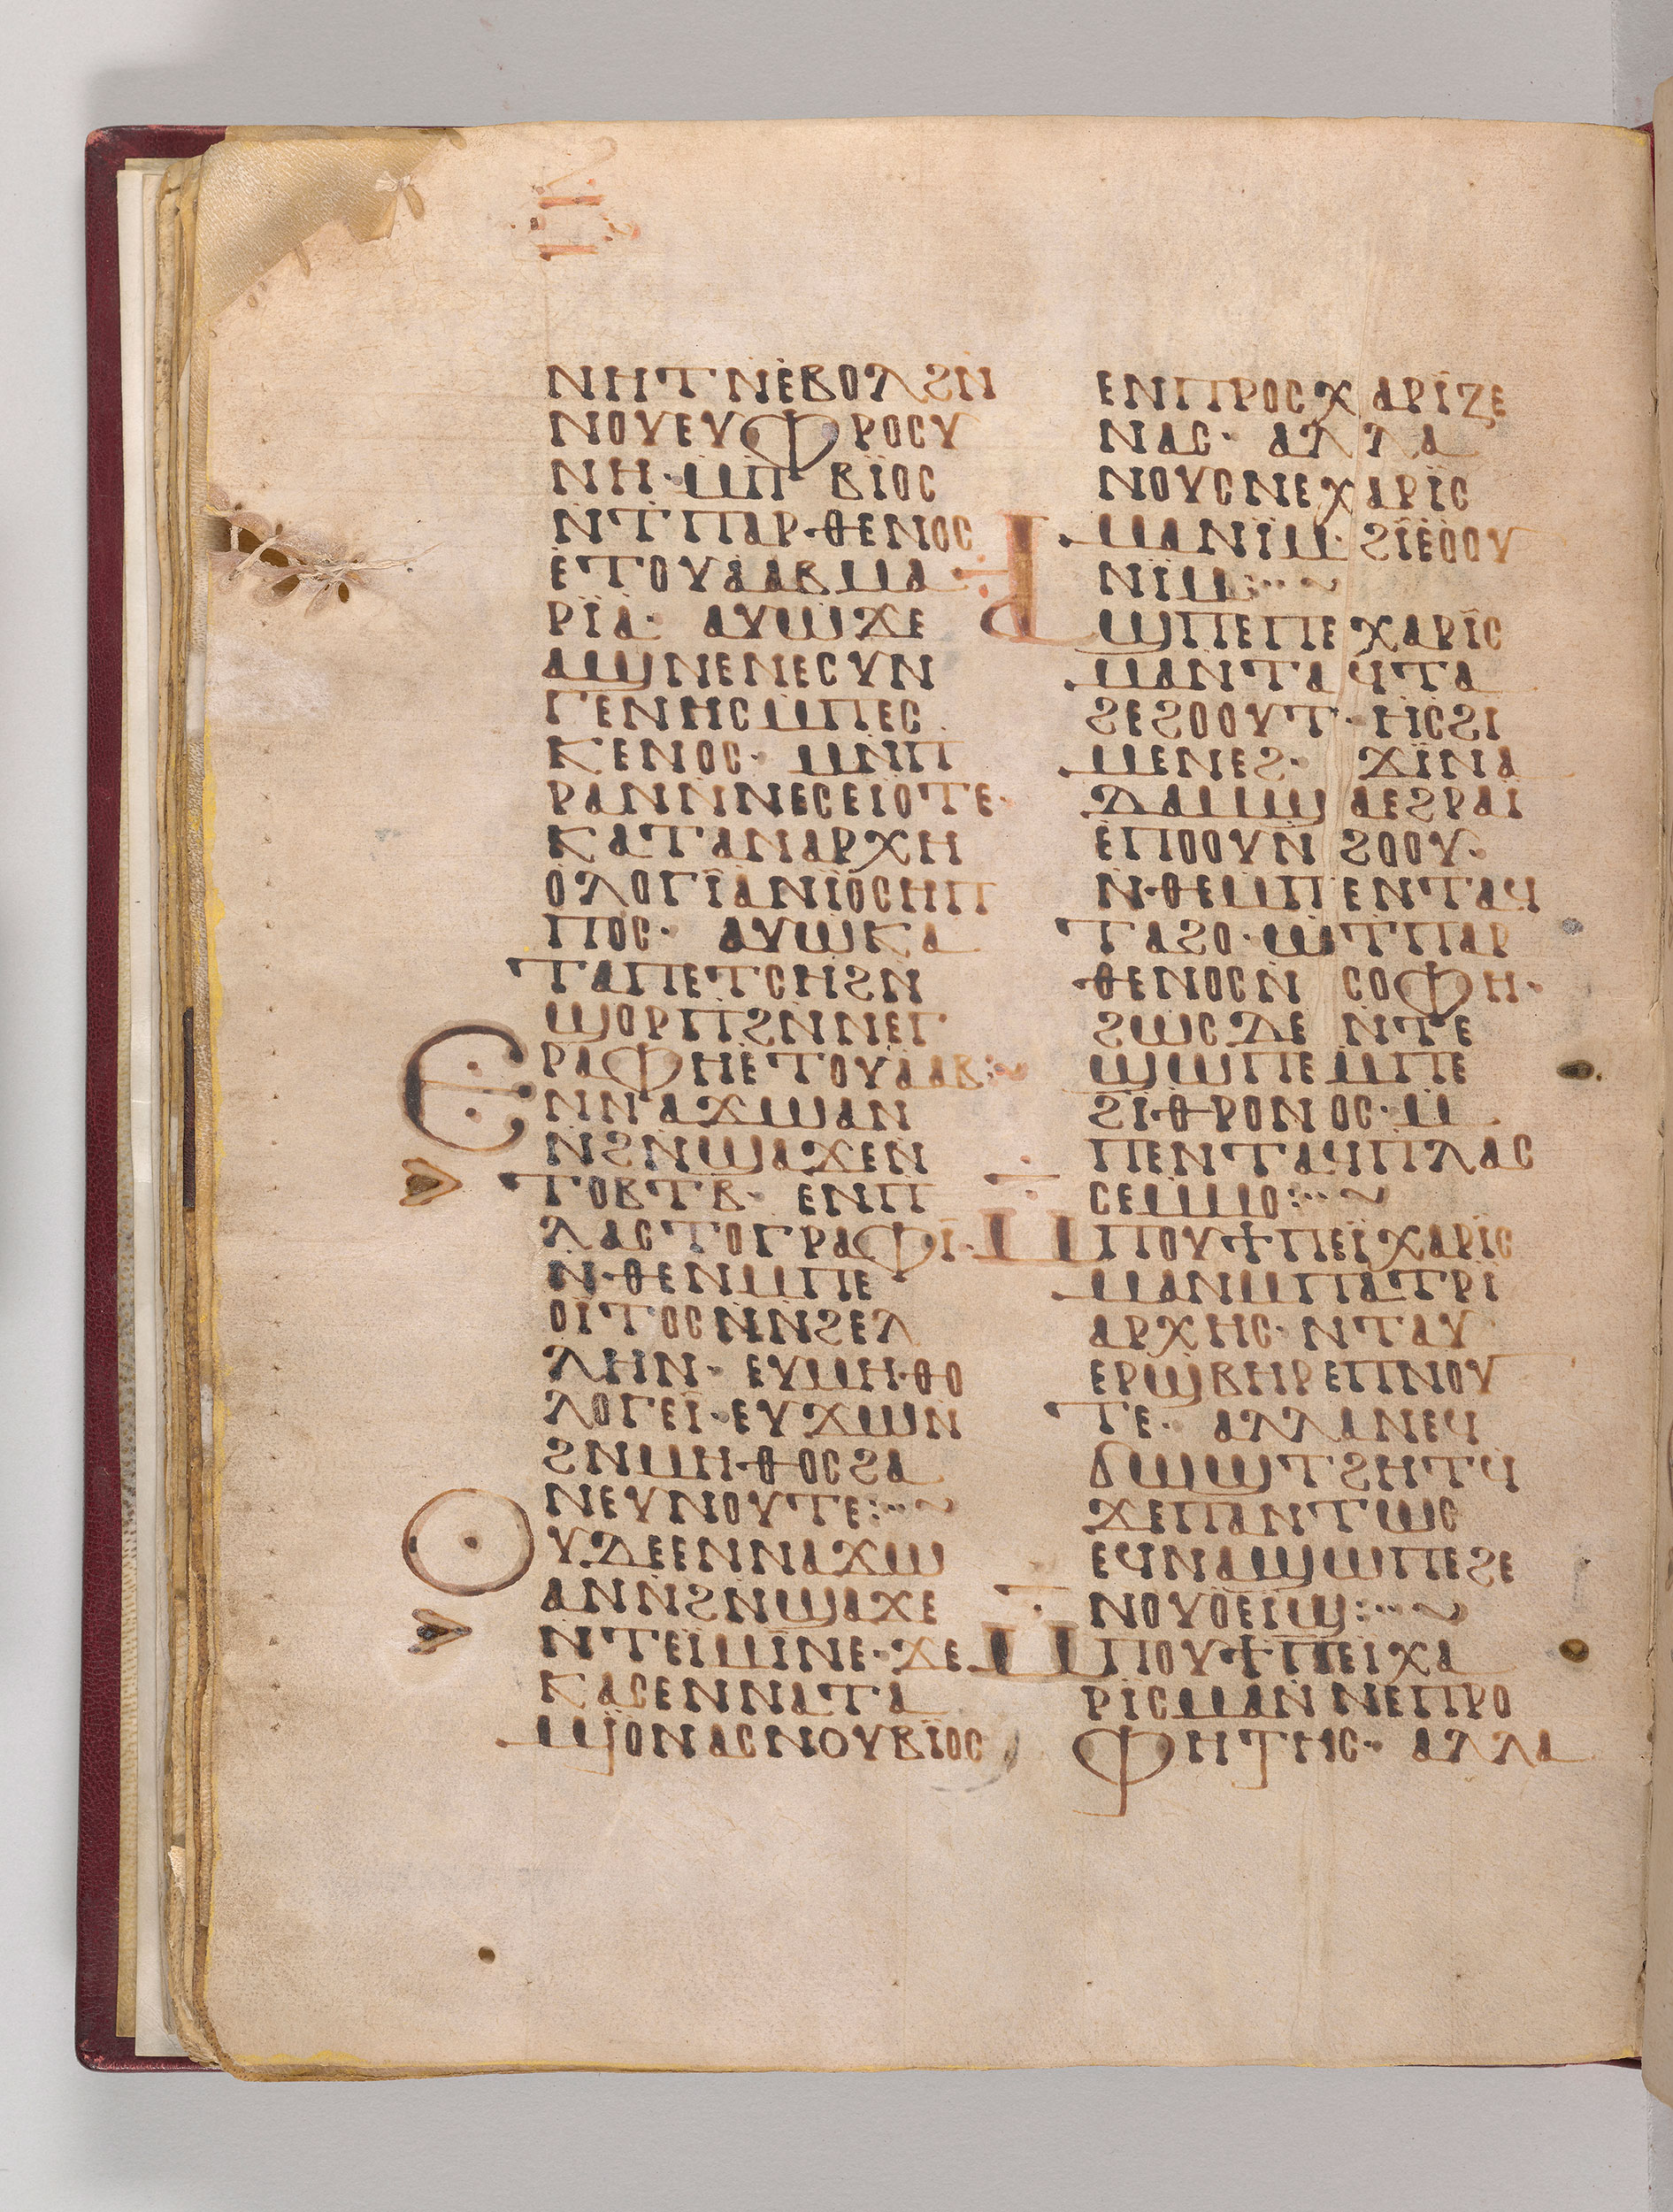 ⲛⲏⲧⲛⲉⲃⲟⲗϩⲛ
ⲛⲟⲩⲉⲩⲫⲣⲟⲥⲩ
ⲛⲏ· ⲙⲡⲃⲓ̈ⲟⲥ
ⲛⲧⲡⲁⲣⲑⲉⲛⲟⲥ
ⲉⲧⲟⲩⲁⲁⲃⲙⲁ
ⲣⲓ̈ⲁ· ⲁⲩⲱϫⲉ
ⲁϣⲛⲉⲛⲉⲥⲩⲛ
ⲅⲉⲛⲏⲥⲙⲡⲉⲥ
ⲕⲉⲛⲟⲥ· ⲙⲛⲡ
ⲣⲁⲛⲛⲛⲉⲥⲉⲓⲟⲧⲉ·
ⲕⲁⲧⲁⲛⲁⲣⲭⲏ
ⲟⲗⲟⲅⲓ̈ⲁⲛⲓ̈ⲟⲥⲏⲡ
ⲡⲟⲥ· ⲁⲩⲱⲕⲁ
ⲧⲁⲡⲉⲧⲥⲏϩⲛ
ϣⲟⲣⲡϩⲛⲛⲉⲅ
ⲣⲁⲫⲏⲉⲧⲟⲩⲁⲁⲃ:~
Ⲉⲛⲛⲁϫⲱⲁⲛ
ⲛϩⲛϣⲁϫⲉⲛ
ⲧⲟⲃⲧⲃ· ⲉⲛⲡ
ⲗⲁⲥⲧⲟⲅⲣⲁⲫⲓ·
ⲛⲑⲉⲛⲙⲡⲉ
ⲟⲓ̈ⲧⲟⲥⲛⲛϩⲉⲗ
ⲗⲏⲛ· ⲉⲩⲙⲏⲑⲟ
ⲗⲟⲅⲉⲓ̈·ⲉⲩϫⲱⲛ
ϩⲛⲙⲏⲑⲟⲥϩⲁ
ⲛⲉⲩⲛⲟⲩⲧⲉ:··~
Ⲟⲩⲇⲉⲉⲛⲛⲁϫⲱ
ⲁⲛⲛϩⲛϣⲁϫⲉ
ⲛⲧⲉⲓ̈ⲙⲓⲛⲉ·ϫⲉ
ⲕⲁⲥⲉⲛⲛⲁⲧⲁ
ⲙⲓ̈ⲟⲛⲁⲥⲛⲟⲩⲃⲓ̈ⲟⲥ
ⲉⲛⲡⲣⲟⲥⲭⲁⲣⲓ̈ⲍⲉ
ⲛⲁⲥ· ⲁⲗⲗⲁ
ⲛⲟⲩⲥⲛⲉⲭⲁⲣⲓ̈ⲥ
ⲙⲁⲛⲓ̈ⲙ·ϩⲓ̈ⲉⲟⲟⲩ
ⲛⲓ̈ⲙ:··~
Ⲣϣⲡⲉⲡⲉⲭⲁⲣⲓ̈ⲥ
ⲙⲁⲛⲧⲁϥⲧⲁ
ϩⲉϩⲟⲟⲩⲧ·ⲏⲥϩⲓ
ⲙⲉⲛⲉϩ· ϫⲓ̈ⲛⲁ
ⲇⲁⲙϣⲁⲉϩⲣⲁⲓ
ⲉⲡⲟⲟⲩⲛϩⲟⲟⲩ·
ⲛⲑⲉⲙⲡⲉⲛⲧⲁϥ
ⲧⲁϩⲟ·ⲱⲧⲡⲁⲣ
ⲑⲉⲛⲟⲥⲛⲥⲟⲫⲏ·
ϩⲱⲥⲇⲉⲛⲧⲉ
ϣⲱⲡⲉⲙⲡⲉ
ϩⲓⲑⲣⲟⲛⲟⲥ·ⲙ
ⲡⲉⲛⲧⲁϥⲡⲗⲁⲥ
ⲥⲉⲙⲙⲟ:··~
Ⲙⲡⲟⲩϯⲡⲉⲓ̈ⲭⲁⲣⲓⲥ
ⲙⲁⲛⲙⲡⲁⲧⲣⲓ
ⲁⲣⲭⲏⲥ· ⲛⲧⲁⲩ
ⲉⲣϣⲃⲏⲣⲉⲡⲛⲟⲩ
ⲧⲉ· ⲁⲗⲗⲁⲛⲉϥ
ϭⲱϣⲧϩⲏⲧϥ
ϫⲉⲡⲁⲛⲧⲱⲥ
ⲉϥⲛⲁϣⲱⲡⲉϩⲉ
ⲛⲟⲩⲟⲉⲓϣ:··~
Ⲙⲡⲟⲩϯⲡⲉⲓⲭⲁ
ⲣⲓⲥⲙⲁⲛⲛⲉⲡⲣⲟ
ⲫⲏⲧⲏⲥ· ⲁⲗⲗⲁ